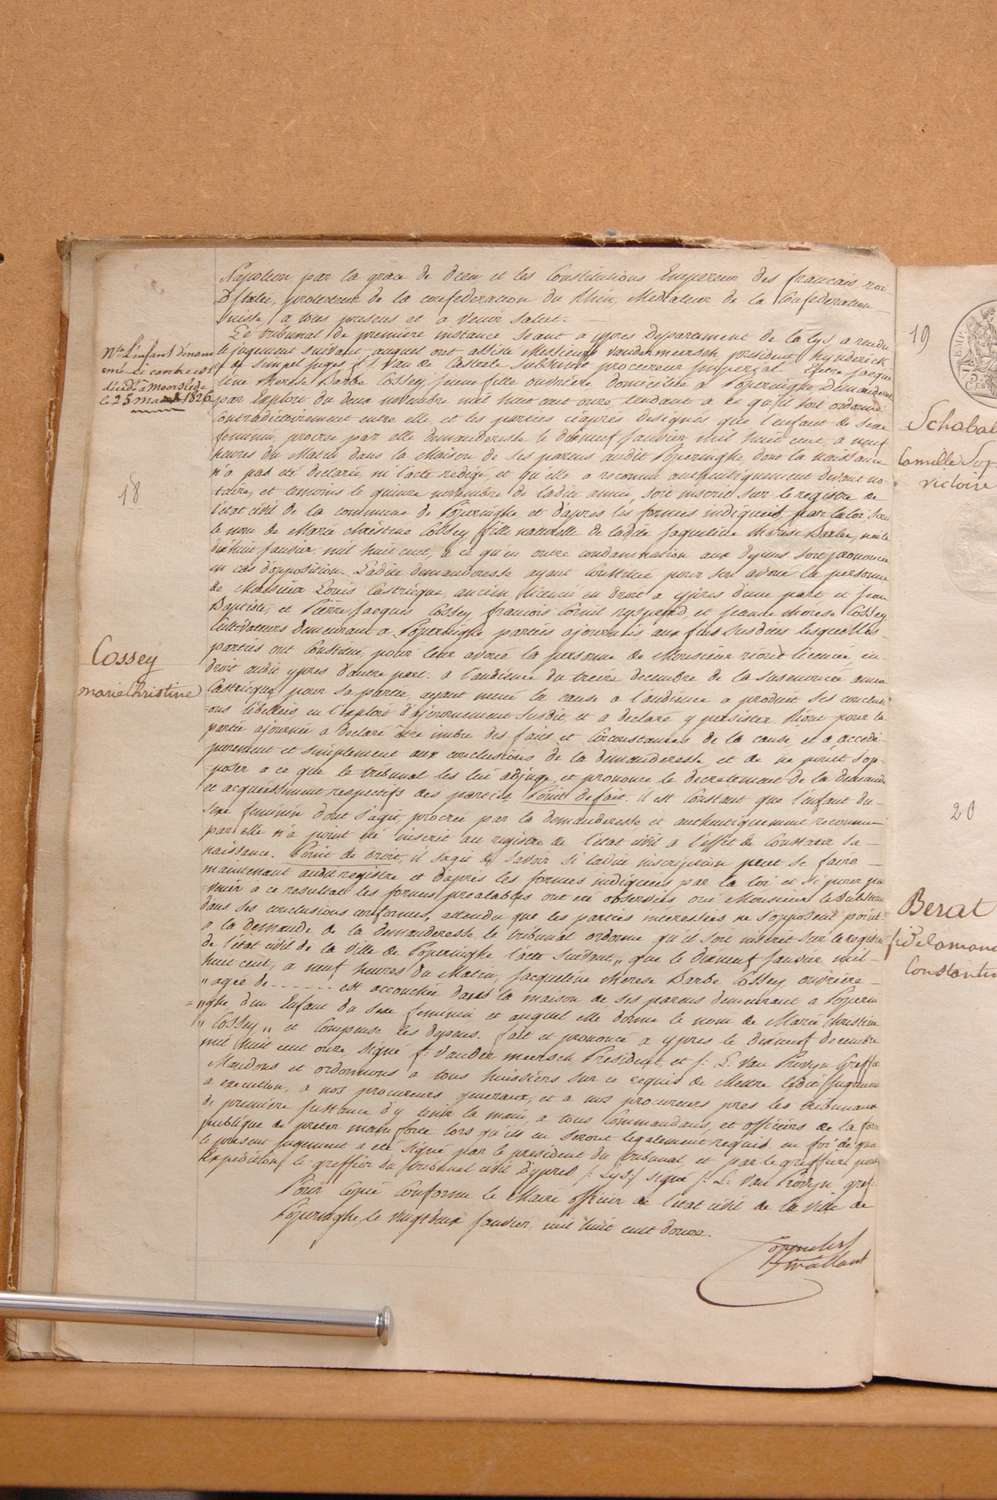 Napoleon par la grace de dieu et les Constitutions Empereur des francais roi
D'Italie, protecteur de la confederation du Rhin, Mediateur de la Confederation
Suisse, à tous presens et à venir Salut.
Le tribunal de premiere instance seant a ypres Departement de la Lys, a rendu
le jugement suivant, auquel ont assisté Messieurs vandermeersch president, hynderick
juges Van de Casteele Substitut procureur Imperial Entre Jacque
line therese Barbe Cossey, jeune fille ouvriere domiciliée a Poperinghe Demanderesse
par Exploit du deux novembre mil huit cent onze, tendant a ce qu'il soit ordonné
contradictoirement entre elle et les parties ci après designés que l'enfant de sexe
feminin procréé par elle demanderesse le dixneuf Janvier mil huit cent, a neuf
heures du Matin dans la Maison de ses parens audit Poperinghe dont la naissance
n'a pas été declarée ni l'acte redigé et qu'elle a reconnu authentiquement devant no
taire, et temoins le quinze novembre de ladite année, soit inscrit sur le registre de
l'etat civil de la commune de Poperinghe et d'apres les formes indiquées par la loi sous
le nom de Marie Christine Cossey fille naturelle de ladite Jaqueline therese Barbe, née le
Janvier mil huit cent, a ce qu'en outre condamnation aux depens soit prononcée
en cas d'opposition. Ladite demanderesse ayant Constitué pour son avoué la personne
de Monsieur Louis Castricque, ancien licencié en droit a ypres d'une part et Jean
Baptiste, et Pierre Jacques Cossey francois Louis et jeanne therese Cossey
Cultivateurs demeurant a Poperinghe parties ajournées aux fins susdites lesquelles
parties ont constitué pour leur avoué la personne de Monsieur licencié en
droit audit ypres d'autre part. a l'audience du treize decembre de la susmentionée année
Castricque pour sa partie, ayant mené la cause a l'audience a produit ses conclusi
ons libellées en l'exploit d'ajournement susdit, et a declaré y persister pour la
partie ajournée a declaré être imbu des faits et Circonstances de la cause, et a accedé
purement et simplement aux conclusions de la demanderesse et de ne point s'op
poser a ce que le tribunal les lui adjuge, et prononce le decretement de la demande
et acquiescement respectifs des parties. Point de fait. il est Constant que l'enfant du
sexe feminin dont s'agit, procréé par la demanderesse et authentiquement reconnu
par elle n'a point été inscrit au registre de l'etat civil à l'effet de Constater sa
naissance. Point de droit, il s'agit de savoir si ladite inscription peut se faire
maintenant audit registre et d'après les formes indiquées par la loi et si pour par
venir a ce resultat les formes prealables ont été observées oui Monsieur le substitut
dans ses conclusions conformes, attendu que les parties interessées ne s'opposent point
a la demande de la demanderesse le tribunal ordonne qu'il soit inscrit sur le registre
de l'etat civil de la ville de Poperinghe l'acte suivant „ que le dixneuf Janvier mil
huit cent, a neuf heures du Matin, Jacqueline therese Barbe Cossey ouvriere
„ agée de - - - - - est accouchée dans la maison de ses parens demeurant a Poperin
„ ghe d'un Enfant du sexe feminin et auquel elle donne le nom de Marie Christine
„ Cossey „ et Compense les depens. fait et prononcé a ypres le dixneuf decembre
mil huit cent onze, signé f. vander meersch President, et Greffier
Mandons et ordonnons a tous huissiers sur ce requis de Mettre ledit jugement
a execution, a nos procureurs generaux, et a nos procureurs pres les tribunaux
de premiere Instance d'y tenir la main, a tous Commandans, et officiers de la force
publique de preter main forte lors qu'ils en seront legalement requis en foi de quoi
le present jugement a été signé par le president du tribunal, et par le greffier pour
Expedition, le greffier du tribunal civil d'ypres (Lys) signé gref
Pour Copie Conforme le Maire officier de l'etat civil de la ville de
Poperinghe, le vingtdeux Janvier, mil huit cent douze.
Nta l'enfant dénom
mé ci contre est
décédé à Moorslede
le 25 1826
18
Cossey
marie christine
19
Schabal
Camille
victoire
20
Berat
Constantin